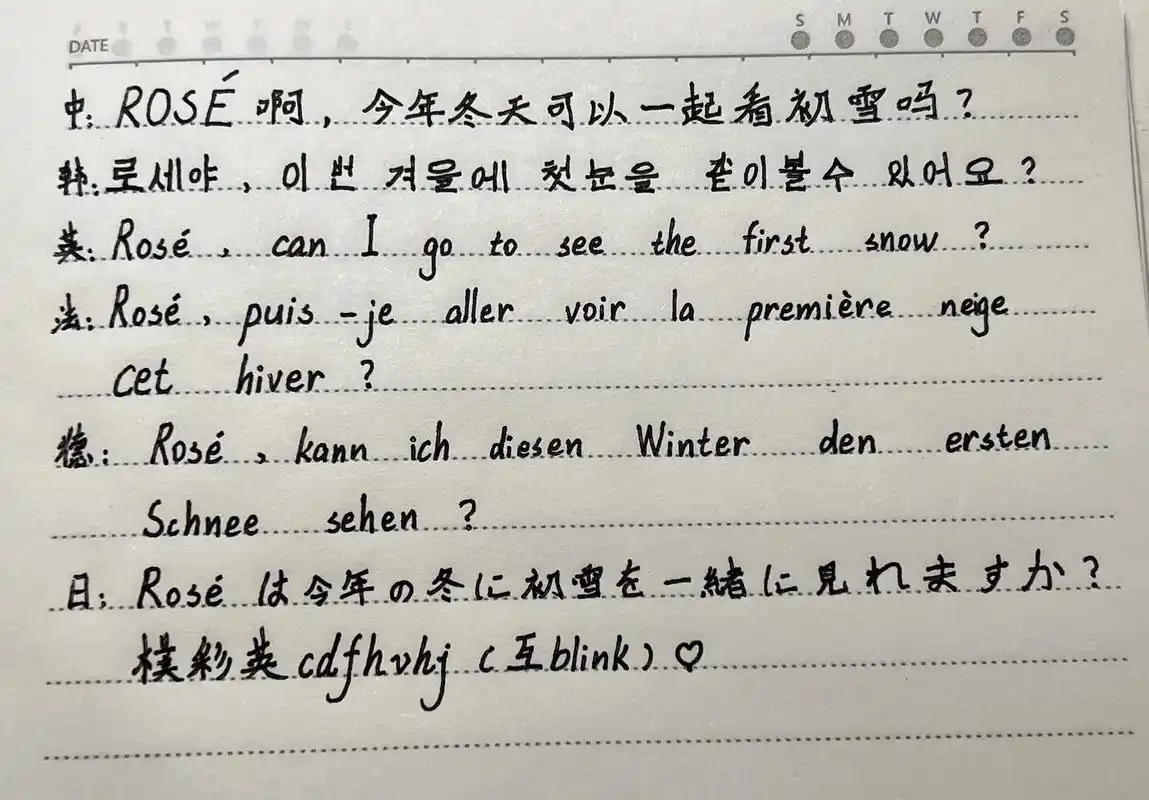 DATE S M T W T F S
中: ROSÉ 啊, 今年冬天可以一起看初雪吗?
韩: 로세야, 이번 겨울에 첫눈을 같이볼수 있어요?
英: Rosé, can I go to see the first snow ?
法: Rosé, puis-je aller voir la première neige
cet hiver ?
德: Rosé, kann ich diesen Winter den ersten
Schnee sehen ?
日: Rosé は今年の冬に初雪を一緒に見れますか?
樸彩英cdfhvhj (互blink) ♡